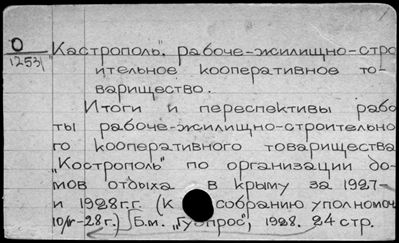 О
1253 "Кастрополь". рабоче-жилищно-стро
ительное кооперативное то-
варищество.
Итоги и переспективы рабо
ты рабоче-жилищно-строительно
го кооперативного товарищества
"Кострополь" по организации до-
мов отдыха в крыму за 1927-
и 1928 г.г. (К собранию уполномоч
10/V-28 г.) Б.м. "Губпрос", 1928. 24 стр.